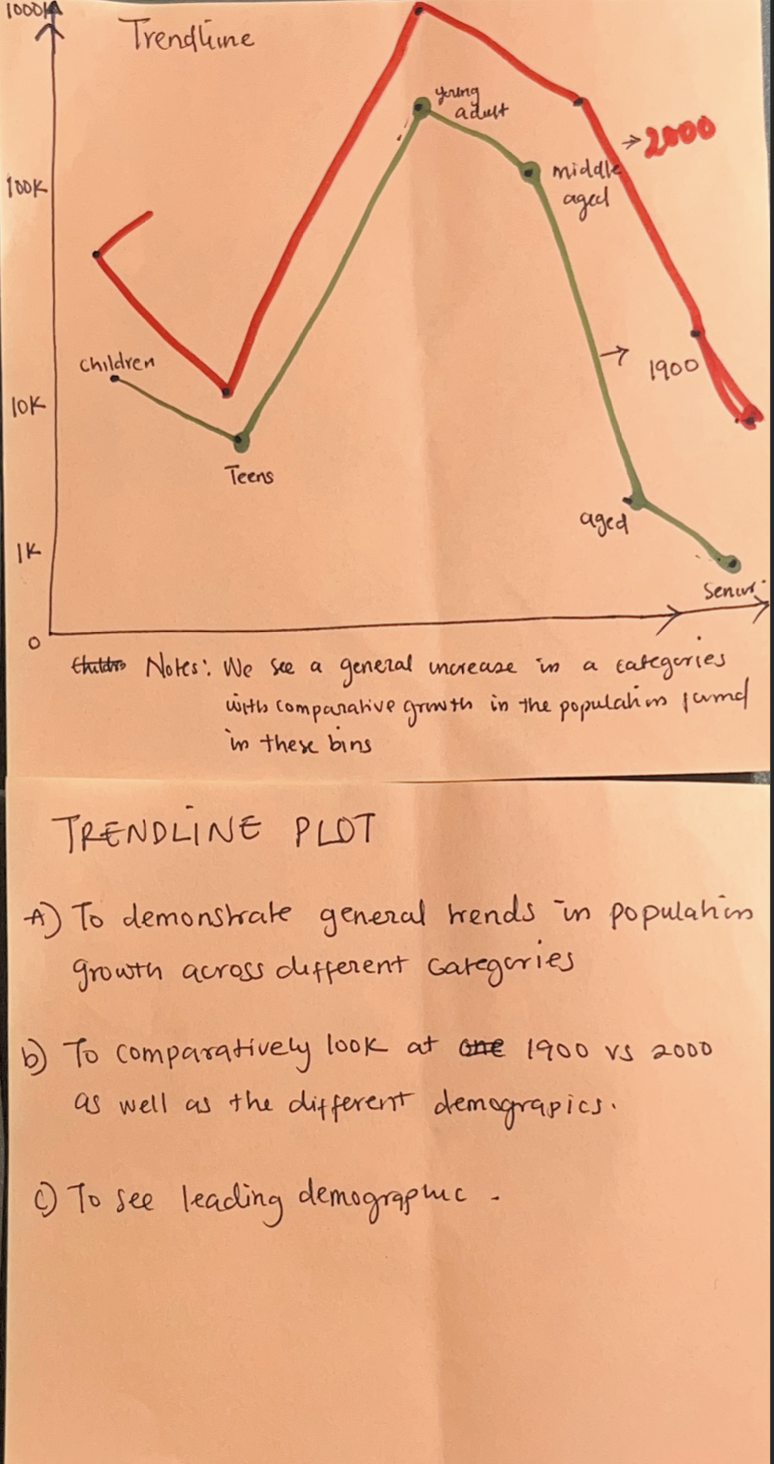 1000K
Trendline
young
adult
2000
100K
middle
aged
children
1900
10K
Teens
aged
1K
Senior
0
Notes: We see a general increase in a categories
with comparative growth in the population
in these bins
TRENDLINE PLOT
A) To demonstrate general trends in population
growth across different categories
b) To comparatively look at one 1900 vs 2000
as well as the different demograpics.
c) To see leading demographic.